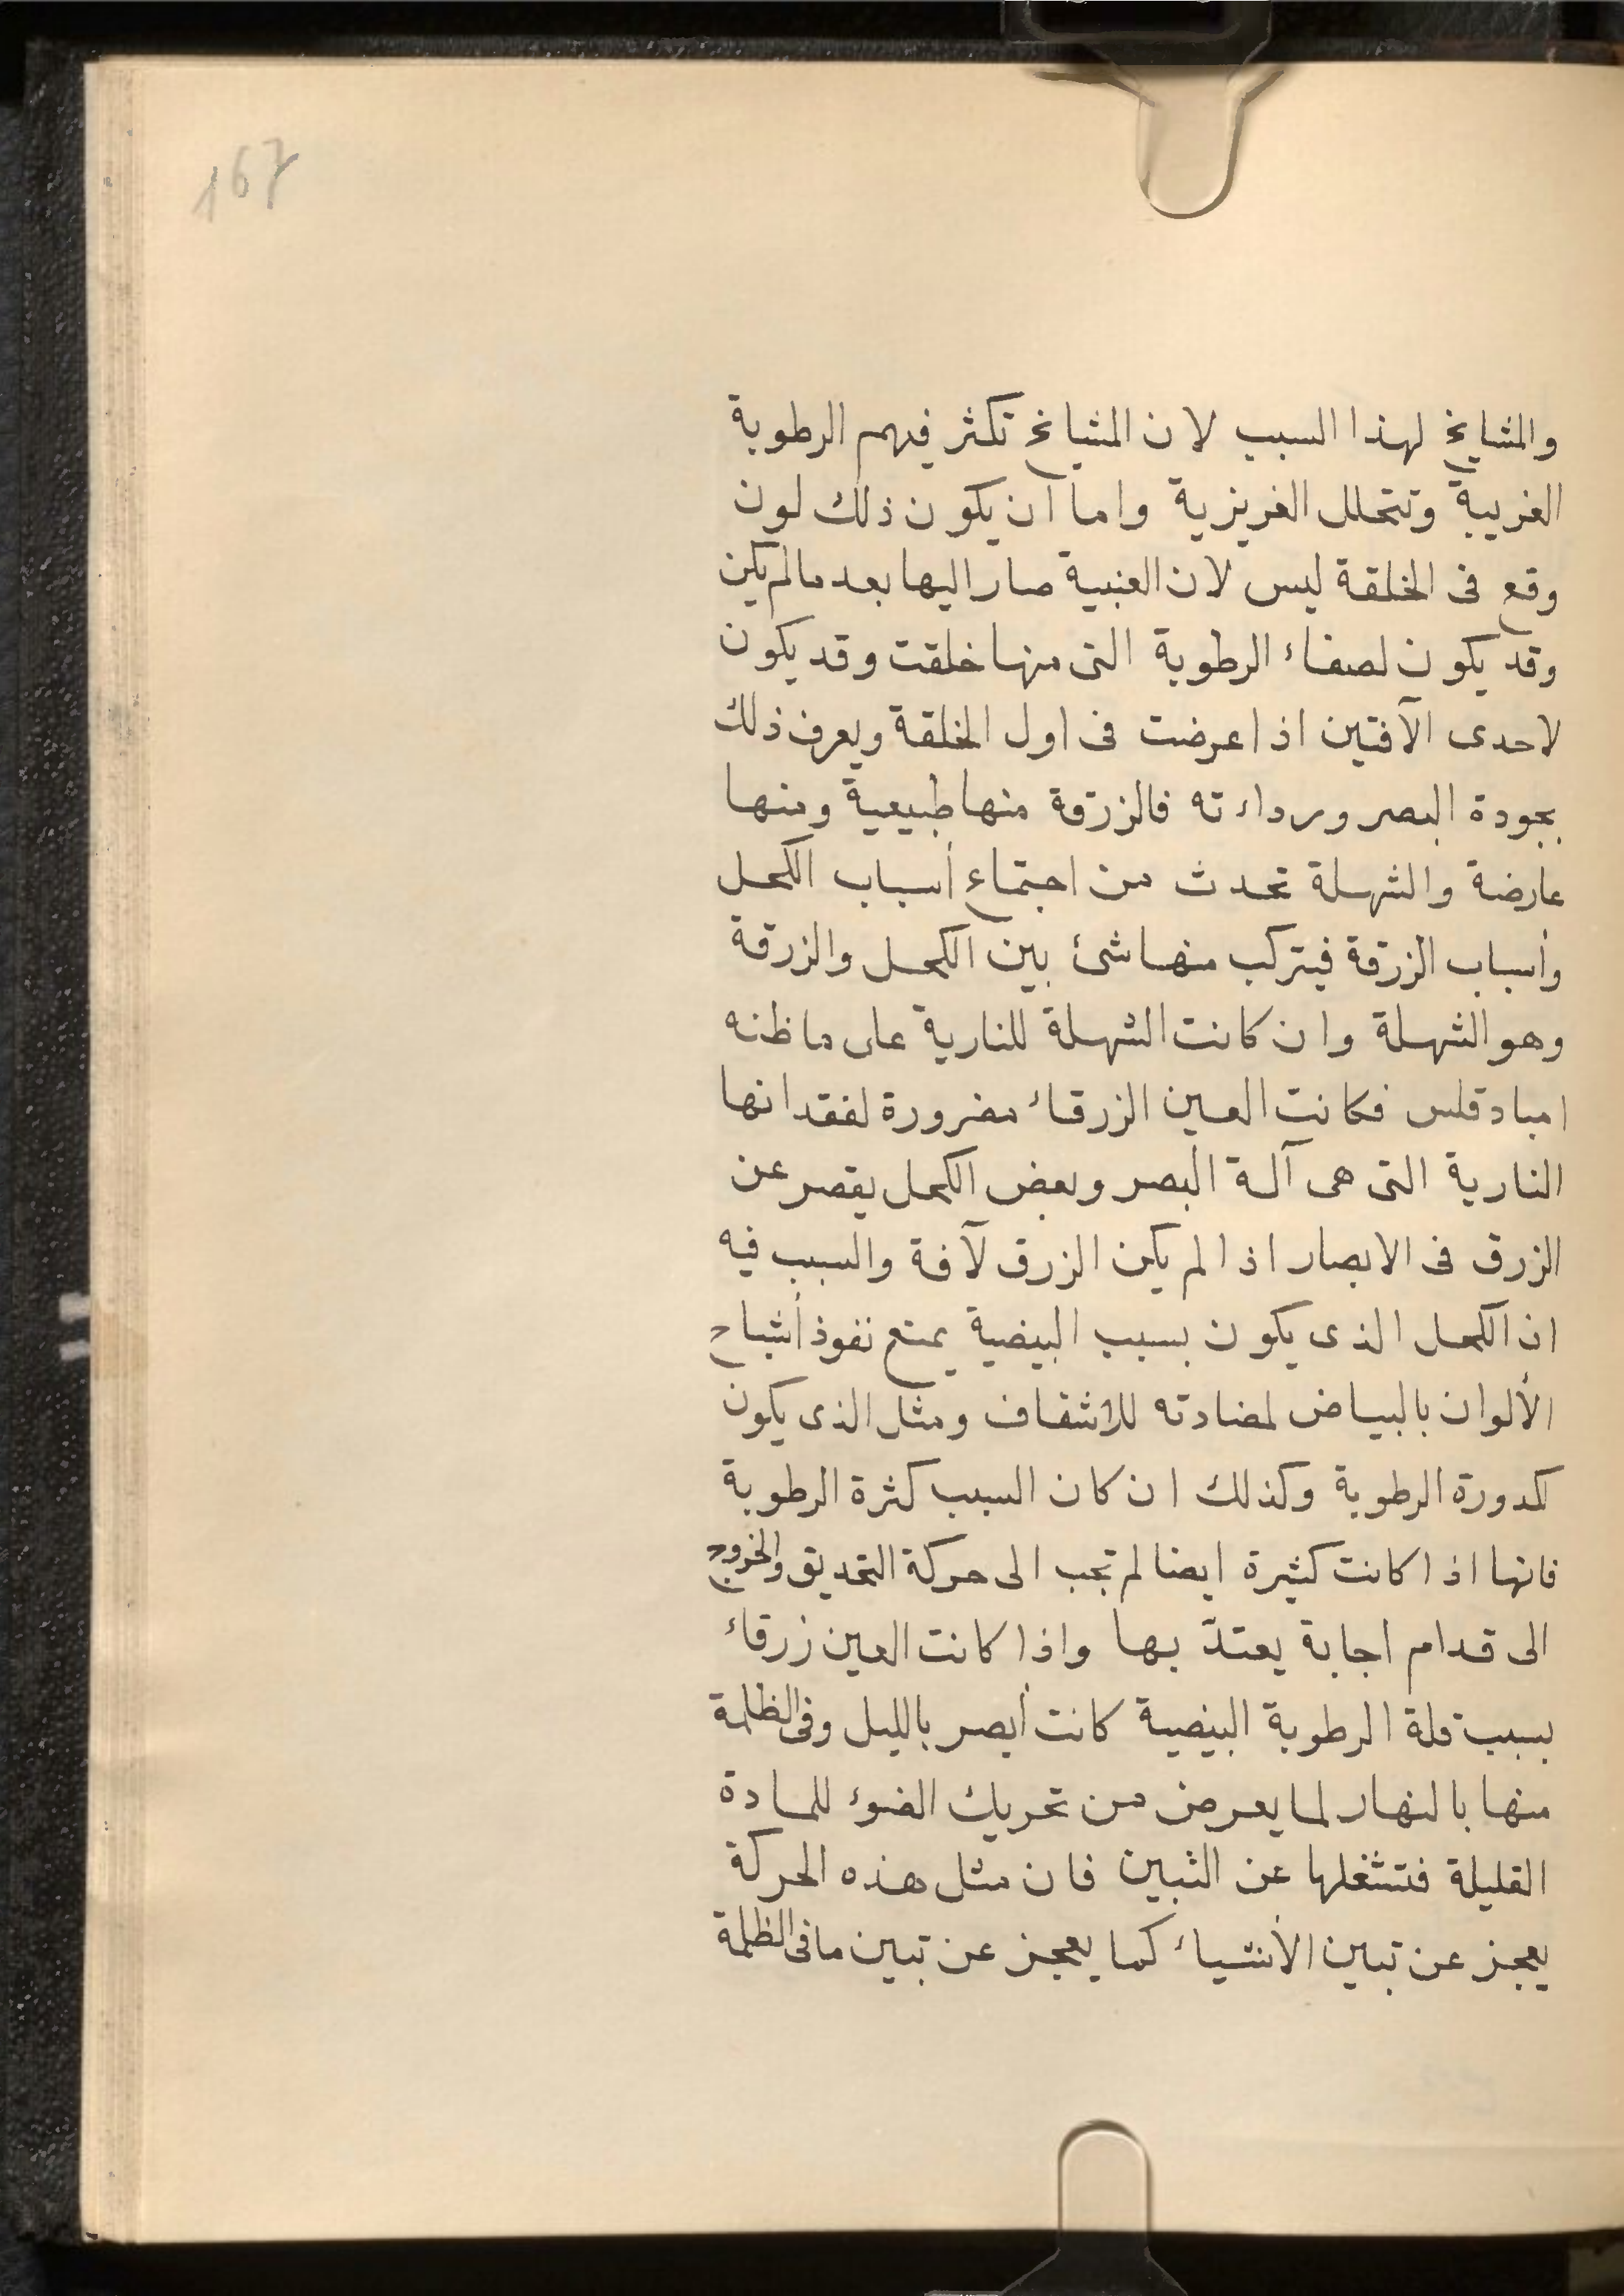 167
والمشايخ لهذا السبب لان المشايخ تكثر فيهم الرطوبة
الغريبة وتتحلل الغريزية واما ان يكون ذلك لون
وقع فى الخلقة ليس لان العنبية صار اليها بعد مالم يكن
وقد يكون لصفاء الرطوبة التى منها خلقت وقد يكون
لاحدى الآفتين اذا عرضت فى اول الخلقة ويعرف ذلك
بجودة البصر ورداءته فالزرقة منها طبيعية ومنها
عارضة والشهلة تحدث من اجتماع أسباب الكحل
وأسباب الزرقة فيتركب منها شئ بين الكحل والزرقة
وهو الشهلة وان كانت الشهلة للنارية على ما ظنه
امبادقلس فكانت العين الزرقاء مضرورة لفقدانها
النارية التى هى آلة البصر وبعض الكحل يقصر عن
الزرق فى الابصار اذا لم يكن الزرق لآفة والسبب فيه
ان الكحل الذى يكون بسبب البيضية يمنع نفوذ أشباح
الألوان بالبياض لمضادته للاشفاف ومثل الذى يكون
لكدورة الرطوبة وكذلك ان كان السبب كثرة الرطوبة
فانها اذا كانت كثيرة ايضا لم تجب الى حركة التحديق والخروج
الى قدام اجابة يعتدّ بها واذا كانت العين زرقاء
بسبب قلة الرطوبة البيضية كانت أبصر بالليل وفى الظلمة
منها بالنهار لما يعرض من تحريك الضوء للمادة
القليلة فتشغلها عن التبين فان مثل هذه الحركة
يعجز عن تبين الأشياء كما يعجز عن تبين ما فى الظلمة